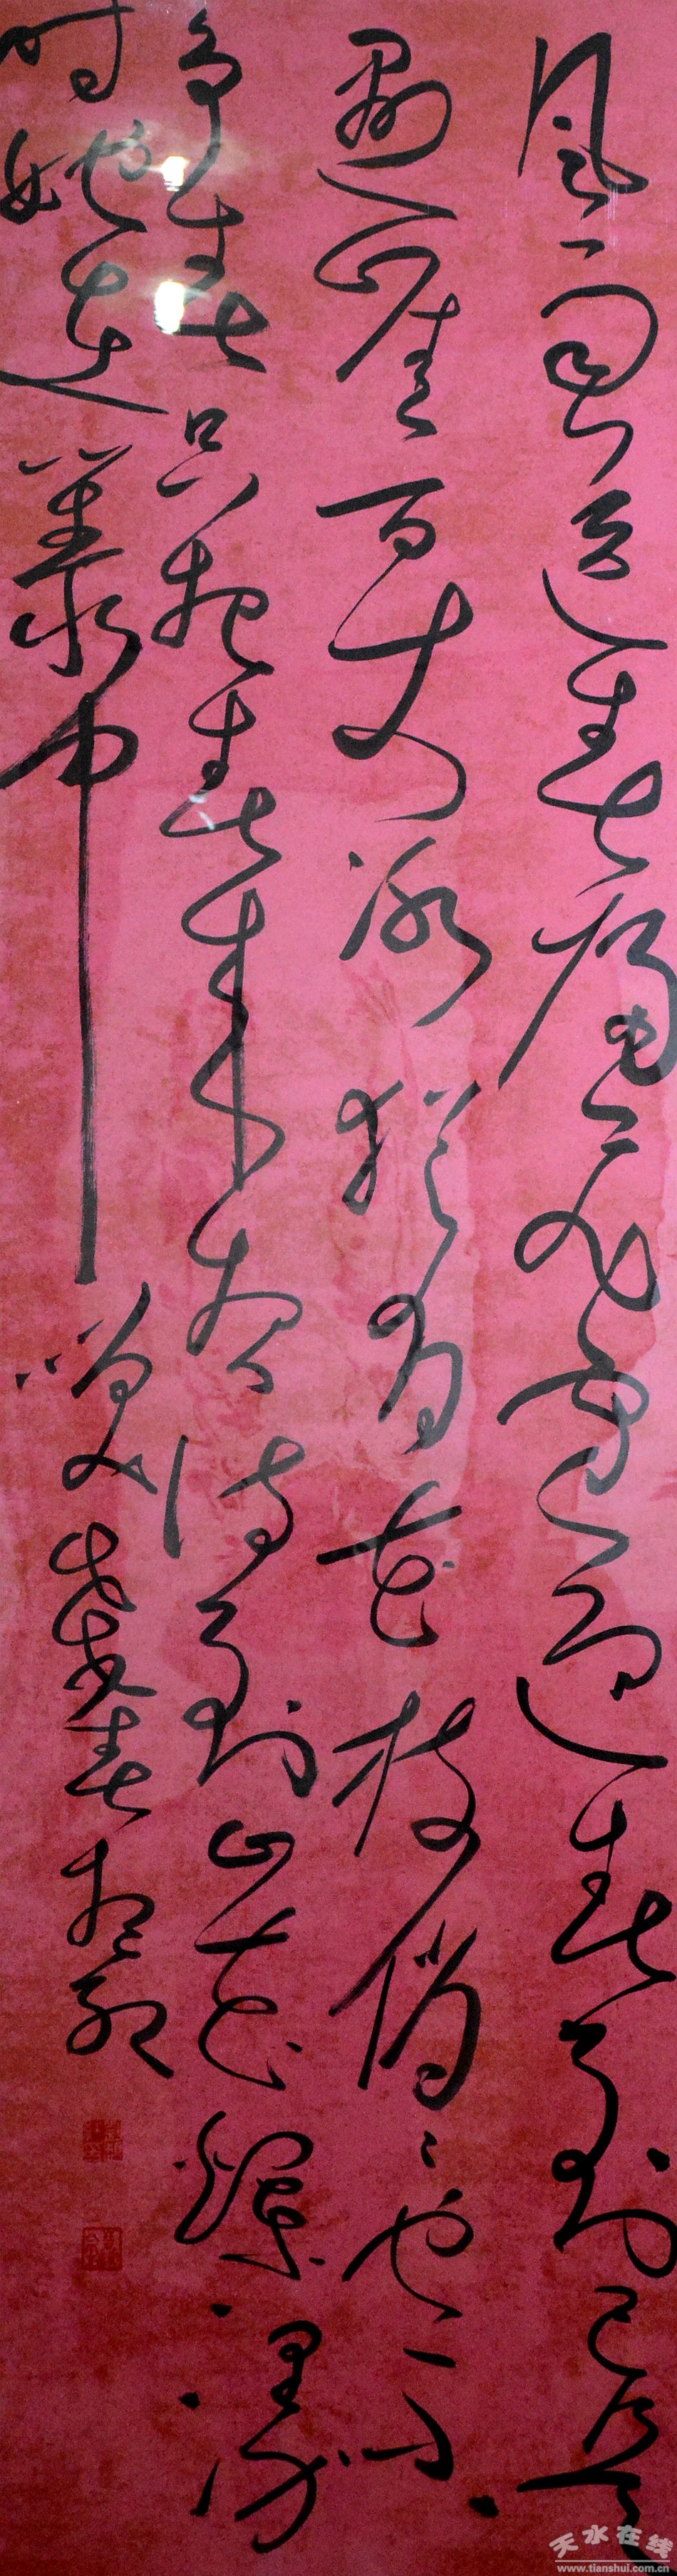 風雨送春歸飛雪迎春到已是
懸崖百丈冰猶有花枝俏〻也不
爭春只把春來報待到山花爛漫
時她在叢中笑
天水在线
www.tianshui.com.cn